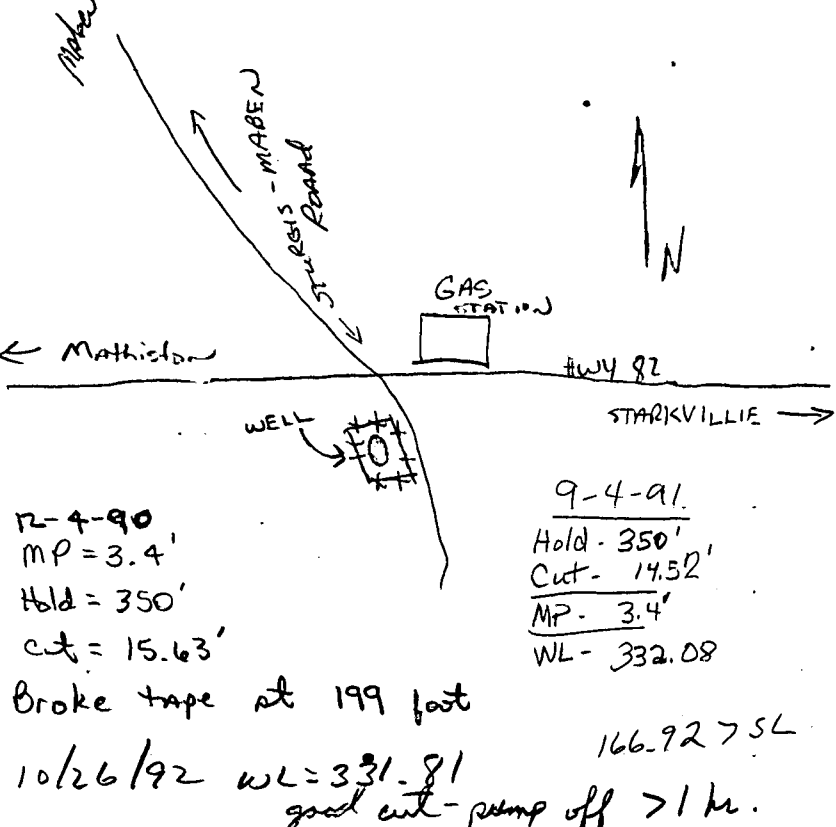 Maben
STURGIS - MABEN
ROAD
N
GAS
STATION
← Mathiston
HWY 82
STARKVILLIE →
WELL
12-4-90
MP = 3.4'
Hold = 350'
cut = 15.63'
Broke tape at 199 foot
9-4-91
Hold - 350'
Cut - 14.52'
MP - 3.4'
WL - 332.08
166.92 > SL
10/26/92 WL = 331.81
good cut - pump off > 1 hr.